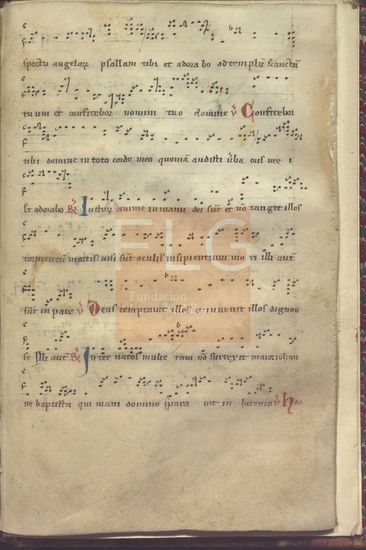 spectu angelor psallam tibi et adora bo ad templū sanctū
tuum et confitebor nomini tuo domine ℣ Confitebor
tibi domine in toto corde meo quoniā audisti ūba oris mei
et adorabo ℟ Iustor anime in manu dei sūt et nō tanget illos
tormentū mortis visi sūt oculis insipientium mori illi autē
sūt in pace ℣ Deus temptavit illos et invenit illos dignos
se Illi autē ℟ Inter natos mulie rum nō surrexit maior iohan
ne baptista qui viam domino ppara vit in heremo ℣
FLG
Fundación